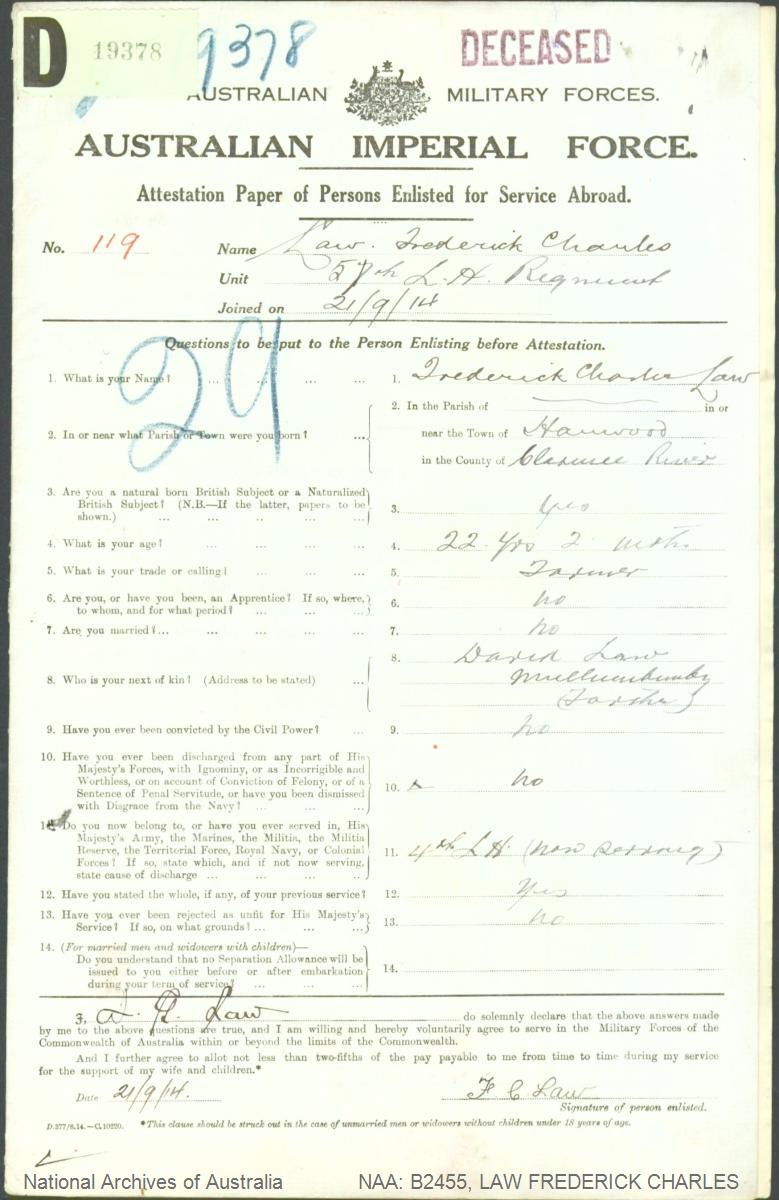 D 19378 9378 DECEASED
AUSTRALIAN MILITARY FORCES.
AUSTRALIAN IMPERIAL FORCE.
Attestation Paper of Persons Enlisted for Service Abroad.
No. 119 Name Law. Frederick Charles
Unit 5th L.H. Regiment
Joined on 21/9/14
29
Questions to be put to the Person Enlisting before Attestation.
1. What is your Name? ... ... ... ... 1. Frederick Charles Law
2. In or near what Parish or Town were you born? ... 2. In the Parish of in or
near the Town of Harwood
in the County of Clarence River
3. Are you a natural born British Subject or a Naturalized
British Subject? (N.B.—If the latter, papers to be
shown.) ... ... ... ... ... 3. Yes
4. What is your age? ... ... ... ... 4. 22 Yrs 2 mths
5. What is your trade or calling? ... ... ... 5. Farmer
6. Are you, or have you been, an Apprentice? If so, where,
to whom, and for what period? ... ... ... 6. no
7. Are you married? ... ... ... ... ... 7. no
8. Who is your next of kin? (Address to be stated) ... 8. David Law
Mullumbimby
(Father)
9. Have you ever been convicted by the Civil Power? ... 9. no
10. Have you ever been discharged from any part of His
Majesty's Forces, with Ignominy, or as Incorrigible and
Worthless, or on account of Conviction of Felony, or of a
Sentence of Penal Servitude, or have you been dismissed
with Disgrace from the Navy? ... ... ... 10. no
11. Do you now belong to, or have you ever served in, His
Majesty's Army, the Marines, the Militia, the Militia
Reserve, the Territorial Force, Royal Navy, or Colonial
Forces? If so, state which, and if not now serving,
state cause of discharge ... ... ... ... 11. 4th L.H. (now serving)
12. Have you stated the whole, if any, of your previous service? 12. Yes
13. Have you ever been rejected as unfit for His Majesty's
Service? If so, on what grounds? ... ... ... 13. no
14. (For married men and widowers with children)—
Do you understand that no Separation Allowance will be
issued to you either before or after embarkation
during your term of service? ... ... ... 14.
I, F. C. Law do solemnly declare that the above answers made
by me to the above questions are true, and I am willing and hereby voluntarily agree to serve in the Military Forces of the
Commonwealth of Australia within or beyond the limits of the Commonwealth.
And I further agree to allot not less than two-fifths of the pay payable to me from time to time during my service
for the support of my wife and children.*
Date 21/9/14. F C Law
Signature of person enlisted.
D.377/8.14.—C.10220. *This clause should be struck out in the case of unmarried men or widowers without children under 18 years of age.
National Archives of Australia NAA: B2455, LAW FREDERICK CHARLES